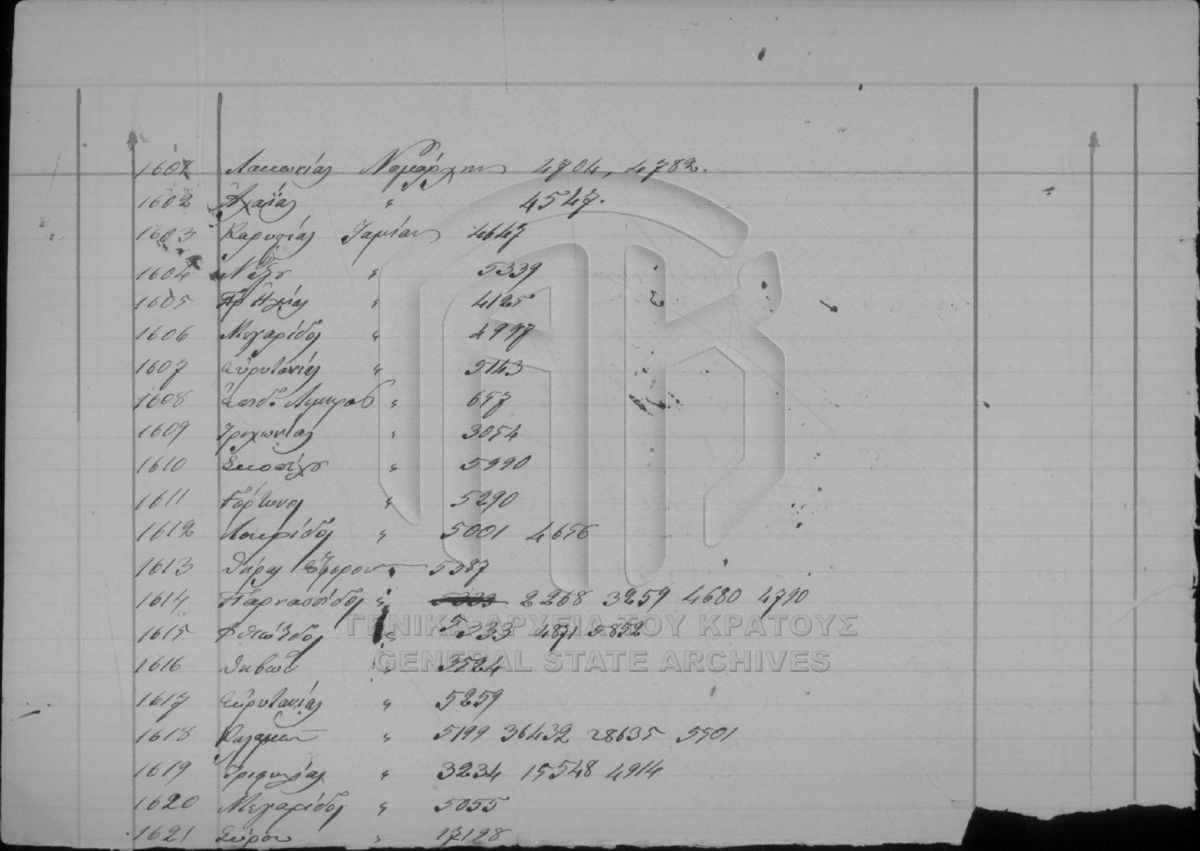 1601 Λακωνίας Νομάρχην 4704, 4782.
1602 Αχαΐας " 4547.
1603 Καρυστίας Ταμίαν 4647
1604 Μήλου " 5339
1605 Πρ Ηλείας " 4125
1606 Μεγαρίδος " 4977
1607 Ευρυτανίας " 5143
1608 Επιδ. Λιμηράς " 657
1609 Τριχωνίας " 3054
1610 Σκοπέλου " 5990
1611 Γόρτυνος " 5290
1612 Λοκρίδος " 5001 4656
1613 Θήρας Έφορον 5387
1614 Παρνασσίδος " 2268 3259 4680 4790
1615 Φθιώτιδος " 5333 4871 5852
1616 Θηβών " 3524
1617 Ευρυτανίας " 5259
1618 Καλαμών " 5199 36432 28635 5501
1619 Τριφυλίας " 3234 15548 4914
1620 Μεγαρίδος " 5055
1621 Σύρου " 17198
ΓΕΝΙΚΑ ΑΡΧΕΙΑ ΤΟΥ ΚΡΑΤΟΥΣ
GENERAL STATE ARCHIVES